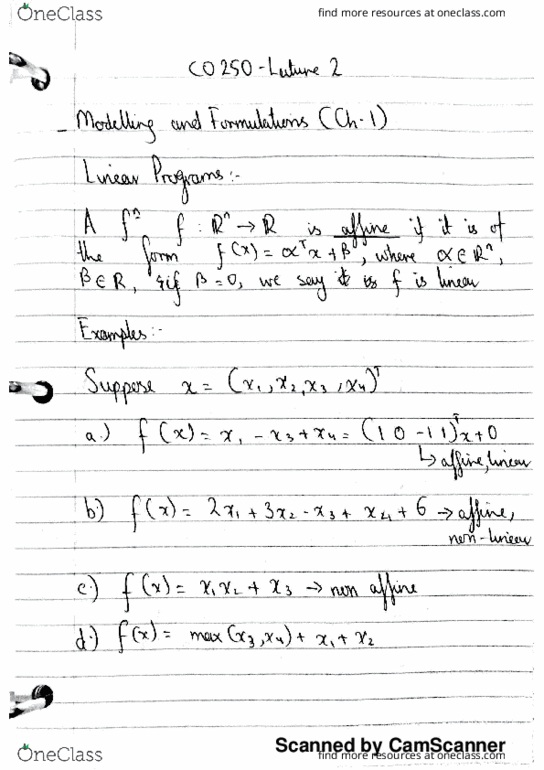 OneClass find more resources at oneclass.com
CO 250 - Lecture 2
Modelling and Formulations (Ch. 1)
Linear Programs :-
A fⁿ f : ℝⁿ → ℝ is affine if it is of
the form f(x) = αᵀx + β, where α ∈ ℝⁿ,
β ∈ ℝ, & if β = 0, we say f is linear
Examples :-
Suppose x = (x₁, x₂, x₃, x₄)ᵀ
a.) f(x) = x₁ - x₃ + x₄ = (1 0 -1 1)ᵀx + 0
↳ affine, linear
b.) f(x) = 2x₁ + 3x₂ - x₃ + x₄ + 6 → affine,
non-linear
c.) f(x) = x₁x₂ + x₃ → non affine
d.) f(x) = max(x₃, x₄) + x₁ + x₂
Scanned by CamScanner
OneClass find more resources at oneclass.com